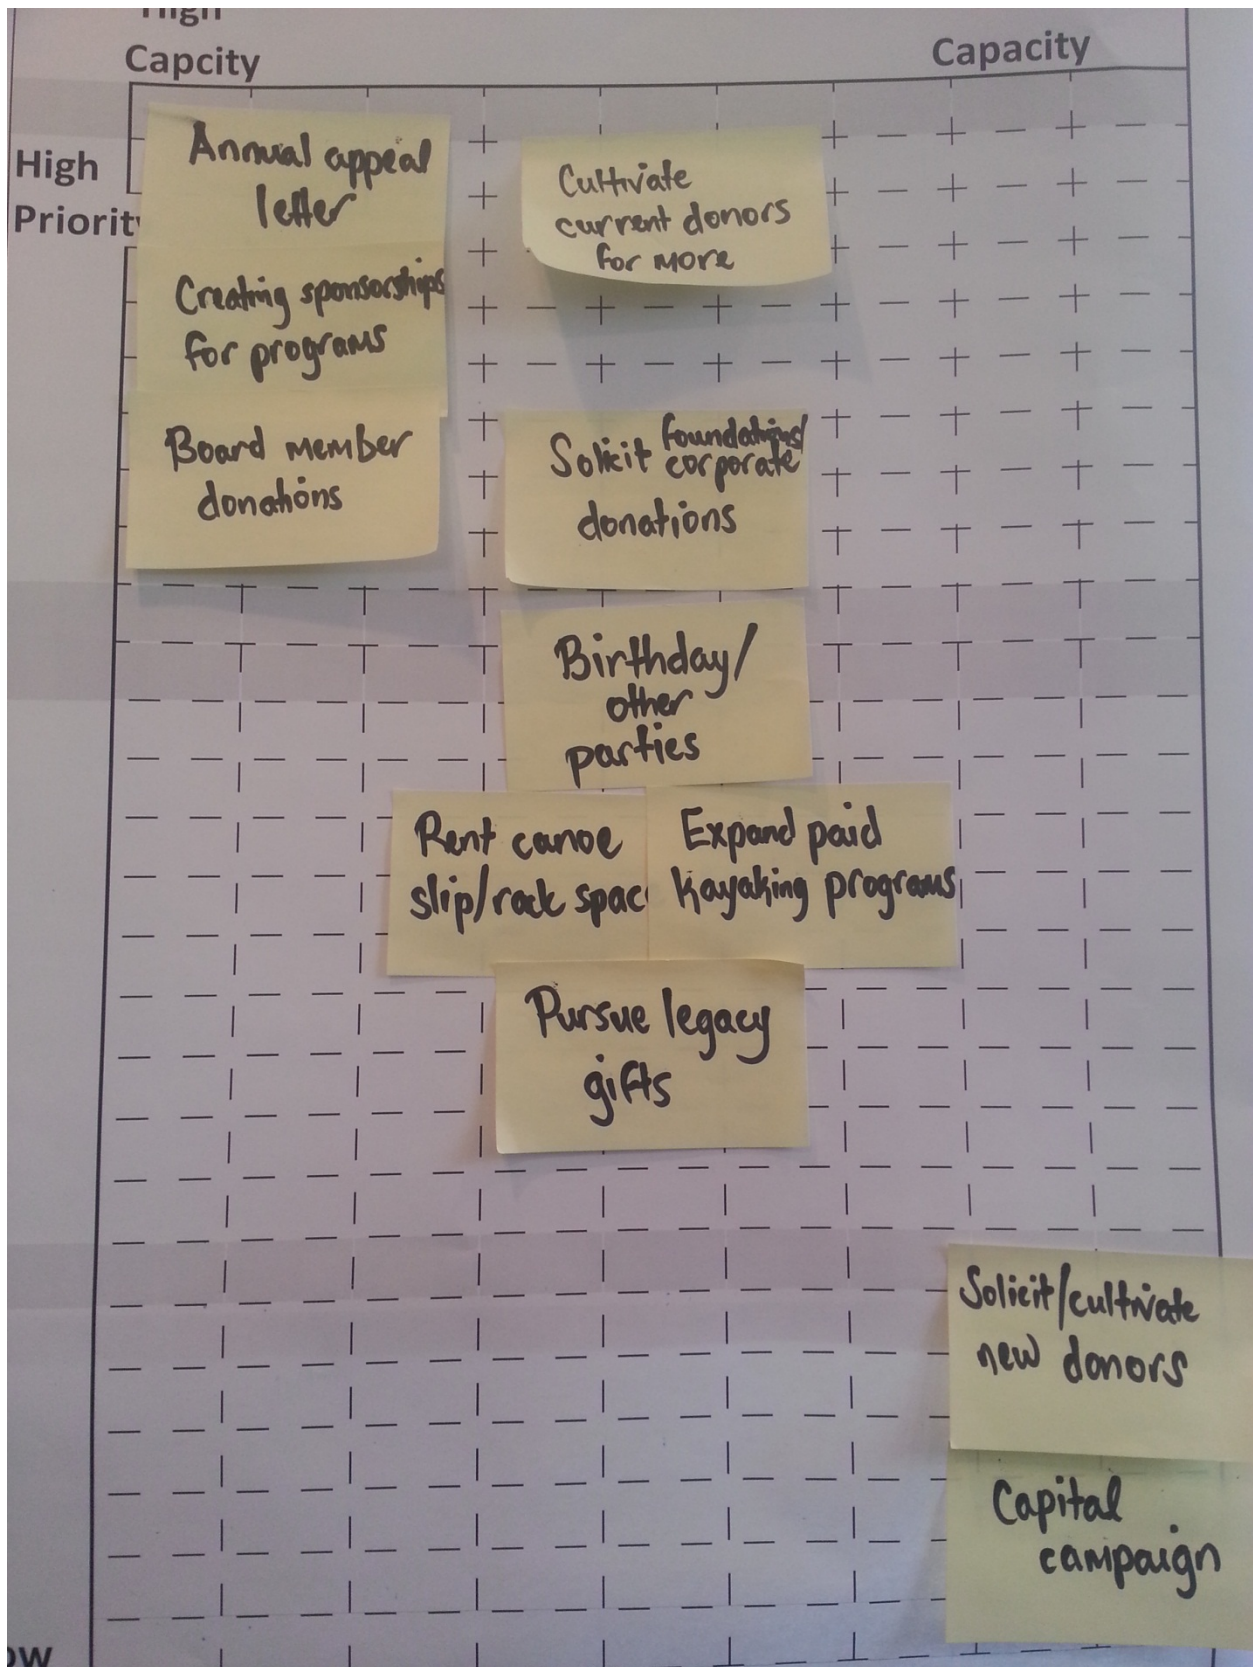 High
Capcity
Capacity
High
Priority
Annual appeal
letter
Cultivate
current donors
for more
Creating sponsorships
for programs
Board member
donations
Solicit foundations/
corporate
donations
Birthday/
other
parties
Rent canoe
slip/rack spac
Expand paid
kayaking programs
Pursue legacy
gifts
Solicit/cultivate
new donors
Capital
campaign
ow